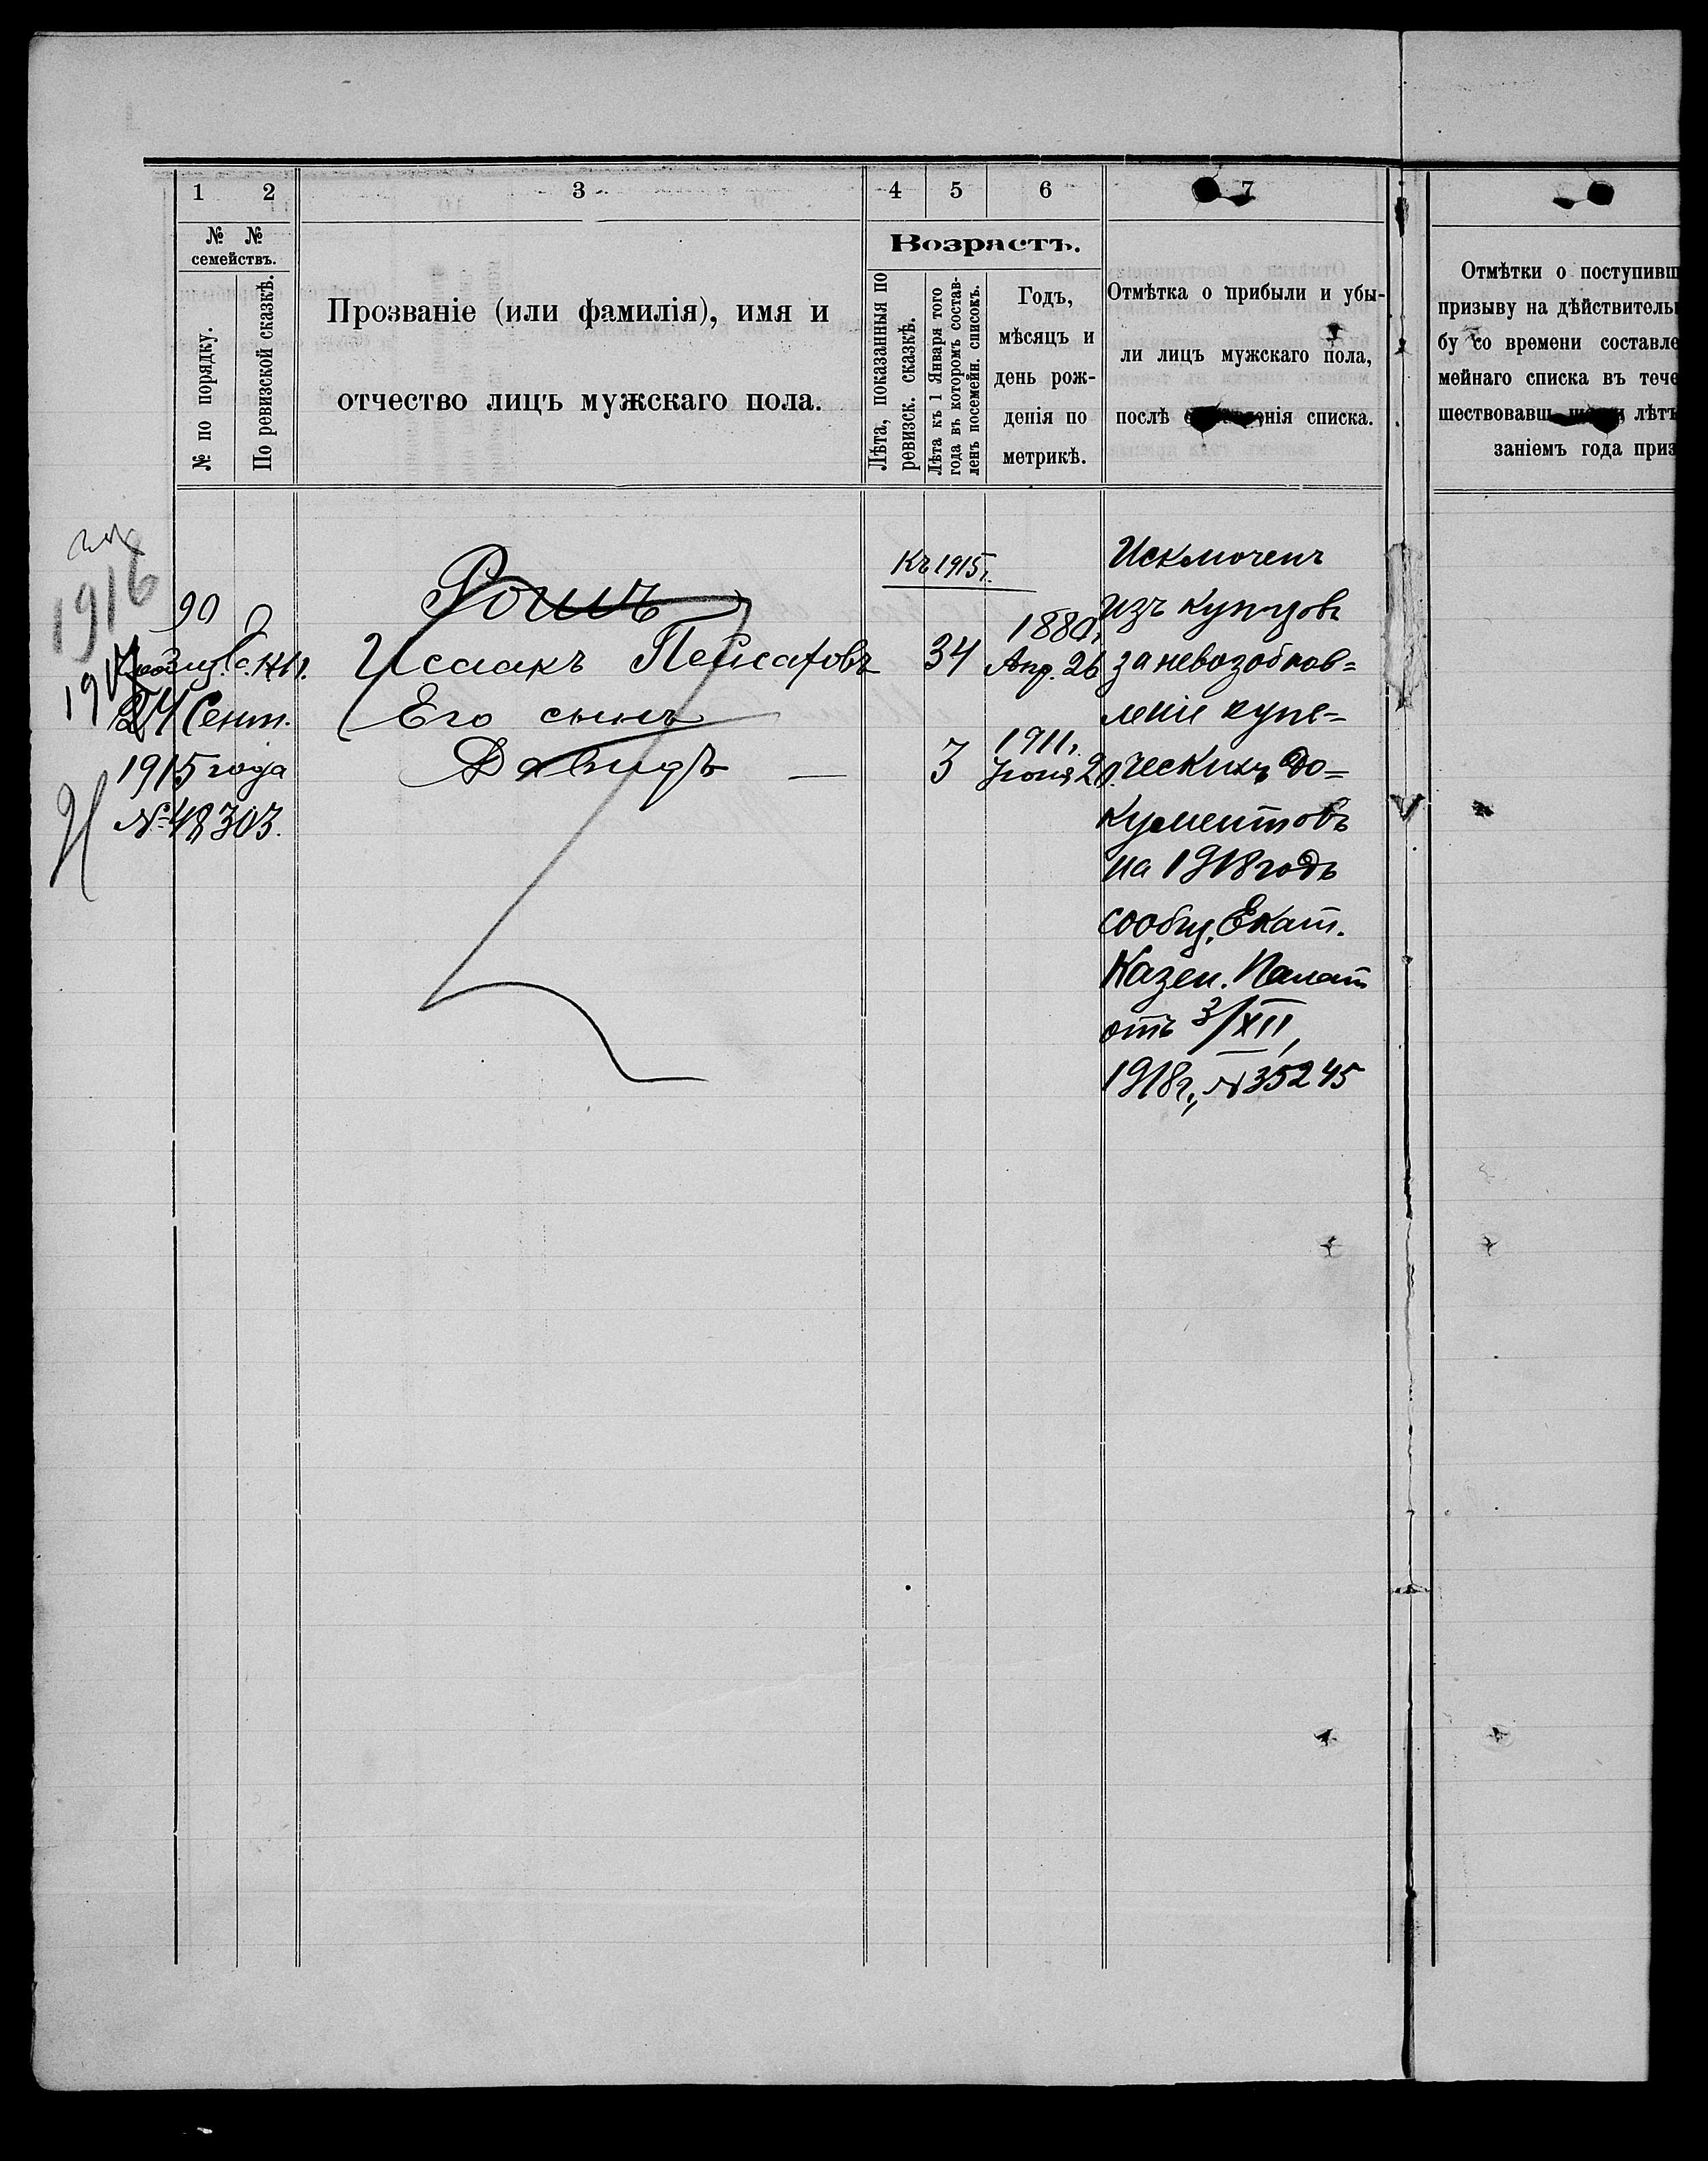 1 2 3 4 5 6 7
№ №
семействъ.
№ по порядку.
По ревизской сказкѣ.
Прозваніе (или фамилія), имя и
отчество лицъ мужскаго пола.
Возрастъ.
Лѣта, показанныя по
ревизск. сказкѣ.
Лѣта къ 1 Января того
года въ которомъ состав-
ленъ посемейн. списокъ.
Годъ,
мѣсяцъ и
день рож-
денія по
метрикѣ.
Отмѣтка о прибыли и убы-
ли лицъ мужскаго пола,
послѣ нія списка.
Отмѣтки о поступивш
призыву на дѣйствитель
бу со времени составле
мейнаго списка въ тече
шествовавш лѣтъ
заніемъ года приз
1916
90
24 Сент.
1915 года
№ 48303.
Рошъ
Исаакъ Пейсаховъ
Его сынъ
Давидъ —
Къ 1915 г.
34
1880,
Апр. 26
3
1911,
Іюня 20.
Исключенъ
изъ купцовъ
за невозобнов=
леніе купе=
ческихъ до=
кументовъ
на 1918 годъ
сообщ. Екат.
Казен. Палат
отъ 3/XII,
1918 г., № 35245